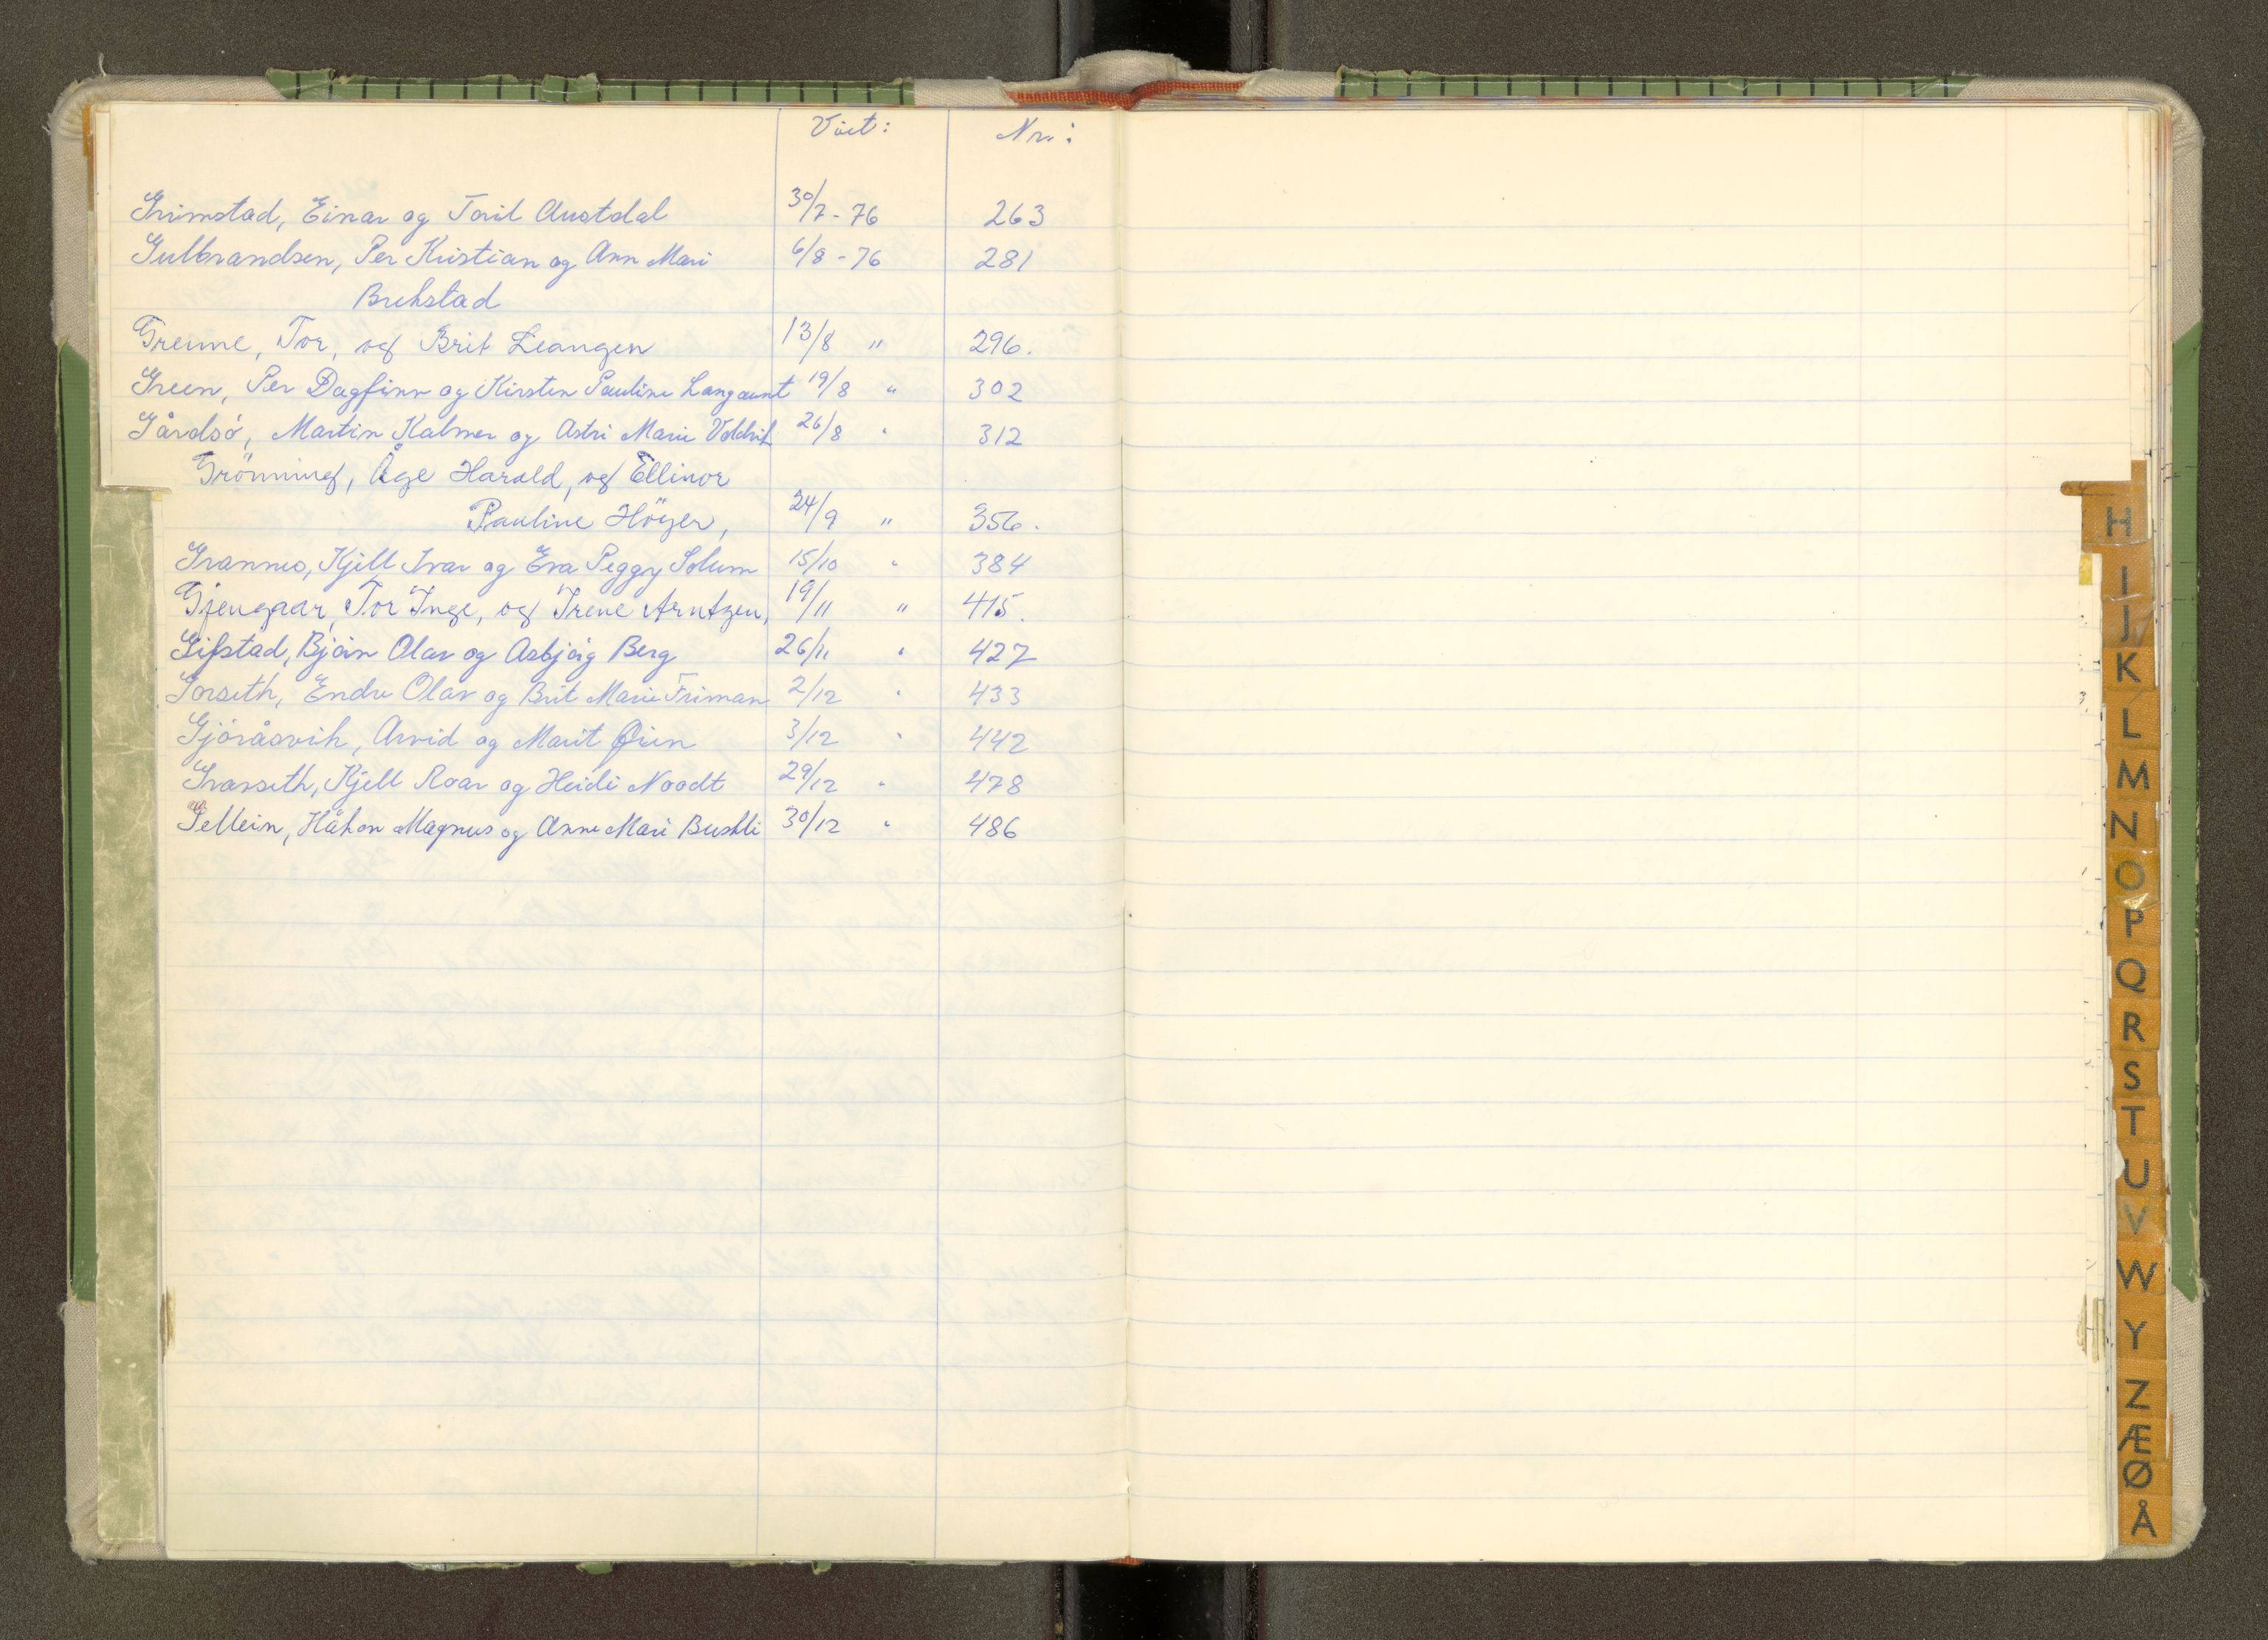 Viet: Nr.:
Grimstad, Einar og Toril Austdal 30/7 - 76 263
Gulbrandsen, Per Kristian og Ann Mari 6/8 - 76 281
Brekstad
Greime, Tor, og Brit Leangen 13/8 " 296.
Green, Per Dagfinn og Kirsten Pauline Langaunt 19/8 " 302
Gårdsö, Martin Kalmer og Astri Marie 26/8 " 312
Grönning, Åge Harald, og Ellinor
Pauline Höyer, 24/9 " 356.
Grannes, Kjell Ivar og Eva Peggy Solum 15/10 " 384
Gjengaar, Tor Inge, og Irene Arntzen, 19/11 " 415.
Gifstad, Bjørn Olav og Asbjørg Berg 26/11 " 427
Gorseth, Endre Olav og Brit Marie Friman 2/12 " 433
Gjöråsvik, Arvid og Marit Øien 3/12 " 442
Kjell Roar og Heidi Noodt 29/12 " 478
Gellein, Håkon Magnus og Anne Mari Buskli 30/12 " 486
H
I
J
K
L
M
N
O
P
Q
R
S
T
U
V
W
Y
Z
Æ
Ø
Å